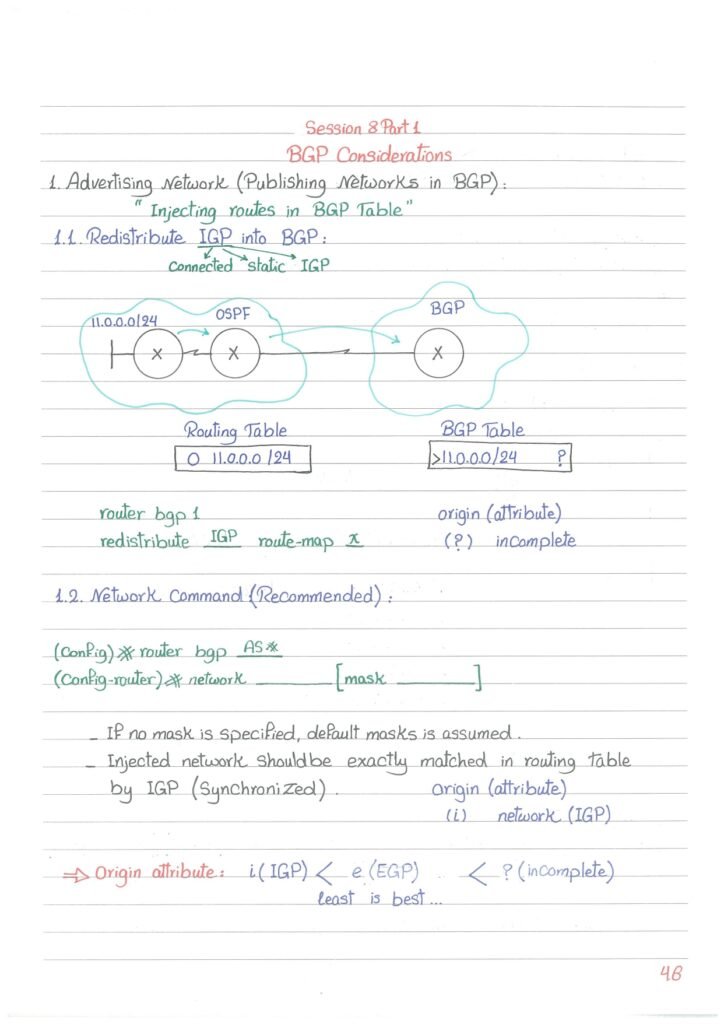 Session 8 Part 1
BGP Considerations
1. Advertising Network (Publishing Networks in BGP):
"Injecting routes in BGP Table"
1.1. Redistribute IGP into BGP:
Connected static IGP
11.0.0.0/24 OSPF BGP
X X X
Routing Table BGP Table
O 11.0.0.0/24 >11.0.0.0/24 ?
router bgp 1 origin (attribute)
redistribute IGP route-map x (?) incomplete
1.2. Network Command (Recommended):
(Config)# router bgp AS#
(Config-router)# network ______ [mask ______]
- If no mask is specified, default masks is assumed.
- Injected network should be exactly matched in routing table
by IGP (Synchronized). origin (attribute)
(i) network (IGP)
⇒ Origin attribute: i (IGP) < e (EGP) < ? (incomplete)
least is best...
48